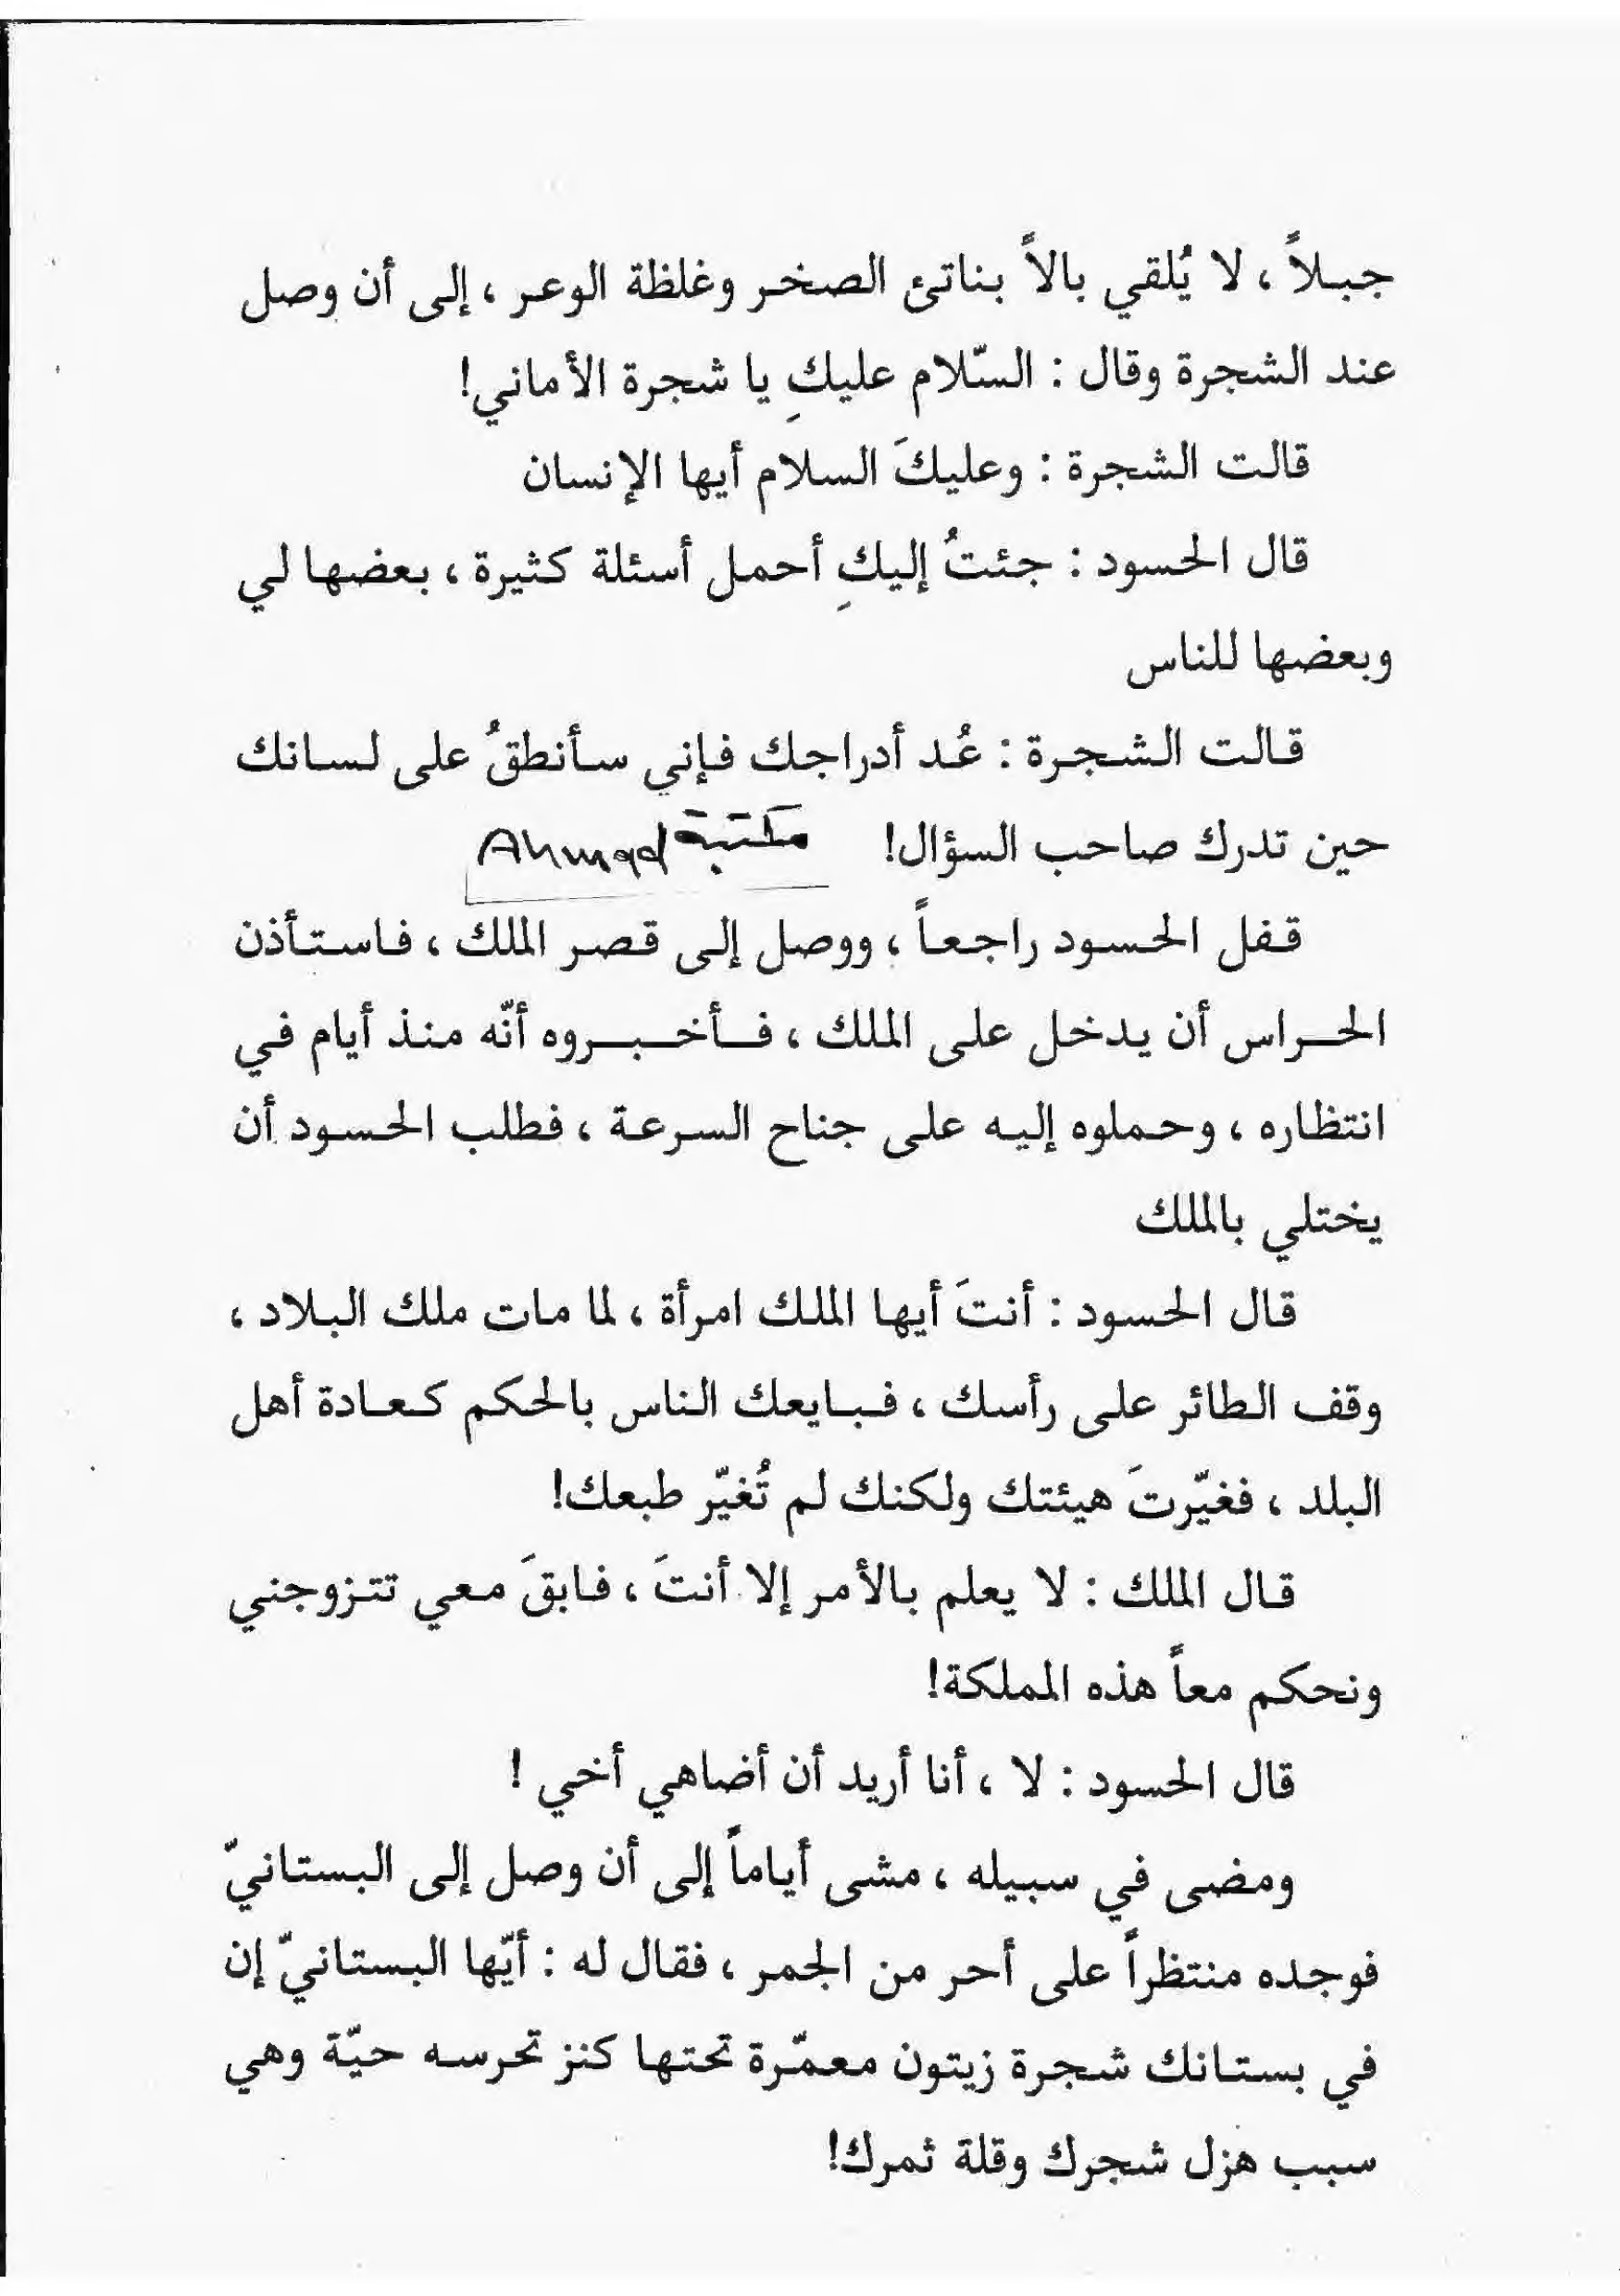 جبلاً ، لا يُلقي بالاً بناتئ الصخر وغلظة الوعر ، إلى أن وصل
عند الشجرة وقال : السّلام عليكِ يا شجرة الأماني!
قالت الشجرة : وعليكَ السلام أيها الإنسان
قال الحسود : جئتُ إليكِ أحمل أسئلة كثيرة ، بعضها لي
وبعضها للناس
قالت الشجرة : عُد أدراجك فإني سأنطقُ على لسانك
حين تدرك صاحب السؤال! مكتبة Ahmad
قفل الحسود راجعاً ، ووصل إلى قصر الملك ، فاستأذن
الحراس أن يدخل على الملك ، فأخبروه أنّه منذ أيام في
انتظاره ، وحملوه إليه على جناح السرعة ، فطلب الحسود أن
يختلي بالملك
قال الحسود : أنتَ أيها الملك امرأة ، لما مات ملك البلاد ،
وقف الطائر على رأسك ، فبايعك الناس بالحكم كعادة أهل
البلد ، فغيّرتَ هيئتك ولكنك لم تُغيّر طبعك!
قال الملك : لا يعلم بالأمر إلا أنتَ ، فابقَ معي تتزوجني
ونحكم معاً هذه المملكة!
قال الحسود : لا ، أنا أريد أن أضاهي أخي !
ومضى في سبيله ، مشى أياماً إلى أن وصل إلى البستانيّ
فوجده منتظراً على أحر من الجمر ، فقال له : أيّها البستانيّ إن
في بستانك شجرة زيتون معمّرة تحتها كنز تحرسه حيّة وهي
سبب هزل شجرك وقلة ثمرك!